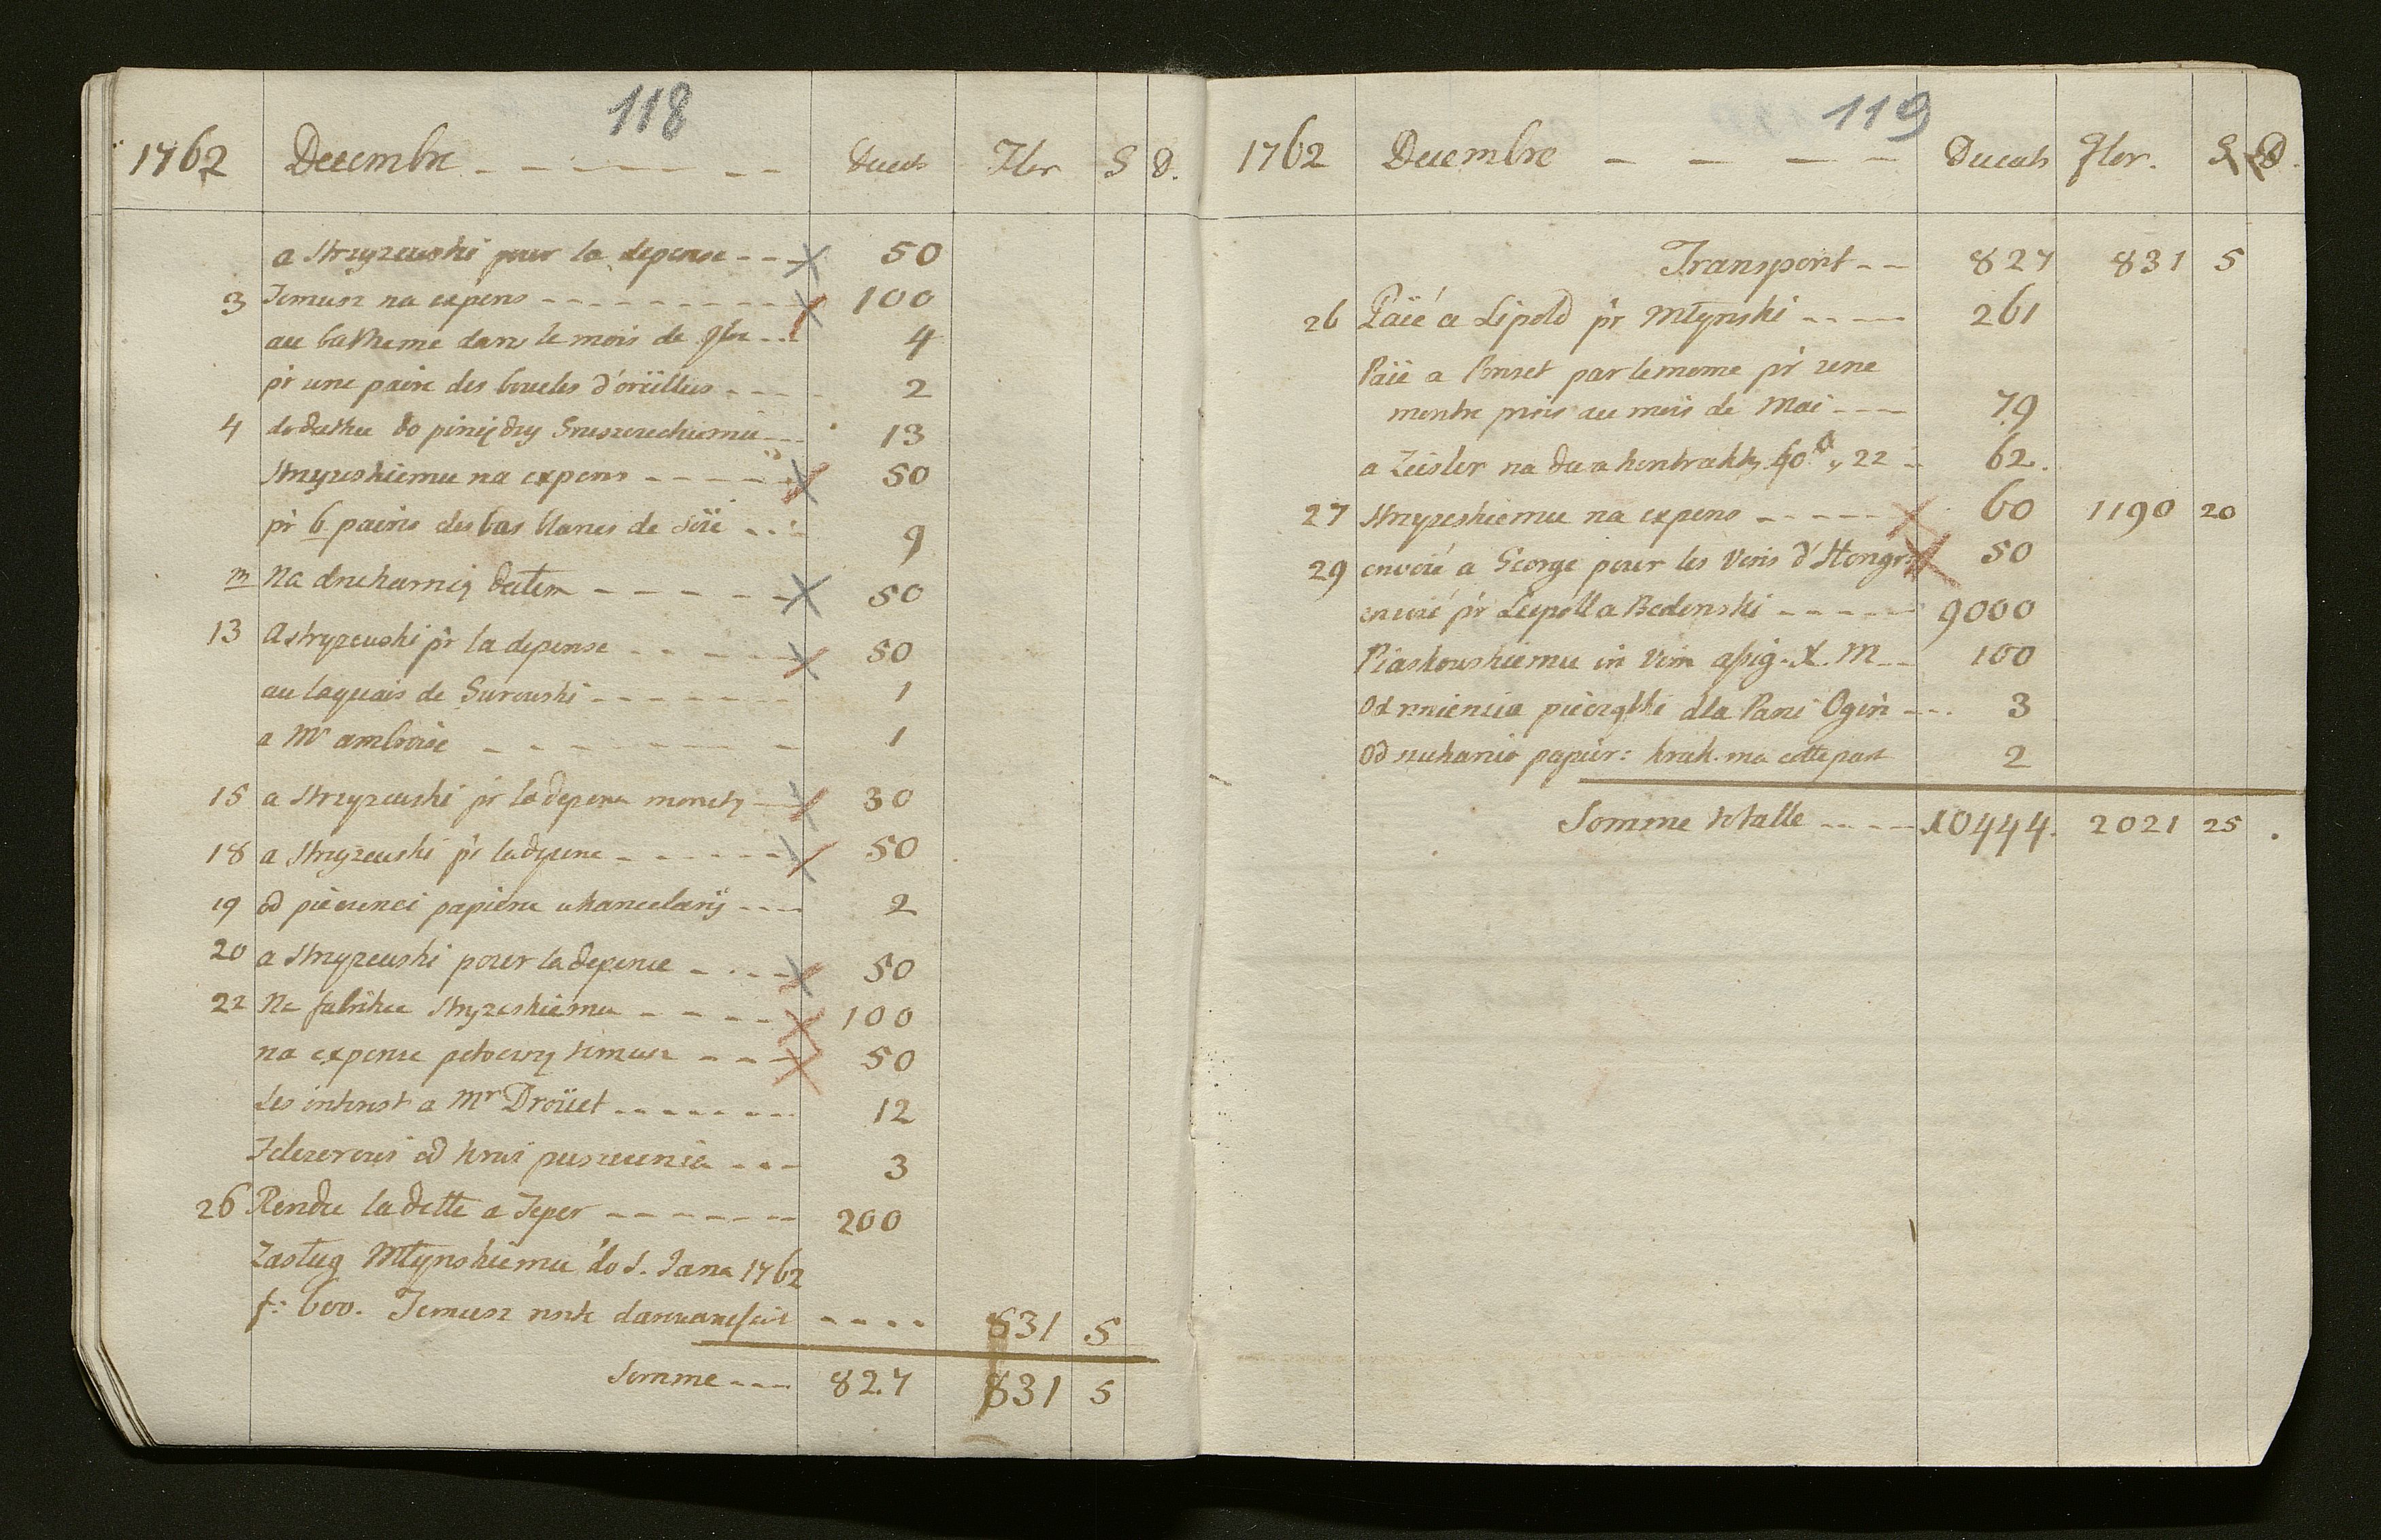 118
1762 Decembre Ducats Flor S D.
a Strzyzewski pour la depense 50
3 Temusz na expens 100
au baptheme dans le mois de 9br 4
pr une paire des boucles d'orïelles 2
4 dodatku do piniędzy 13
Strzyzeskiemu na expens 50
pr 6 pairs des bas blancs de soïe 9
m Na drukarnię dałem 50
13 A Stryzewski pr la depense 50
au laquais de Surowski 1
a Mr ambroise 1
15 a Strzyzewski pr la depens monety 30
18 a Stryzewski pr la depense 50
19 od papieru kancelarÿ 2
20 a Stryzewski pour la depense 50
22 Na fabrikę Stryzeskiemu 100
na expense temusz 50
Les interest a Mr Droüet 12
Felczerowi od krwi puszczenia 3
26 Rendu la dette a Teper 200
Zasług Młynskiemu do S. Jana 1762
f: 600. Temusz 831 5
Somme 827 831 5
119
1762 Decembre Ducats Flor. S D.
Transport 827 831 5
26 Païé a Lipold pr Młynski 261
Païé a par le meme pr une
montre pris au mois de Mai 79
a Zeisler na dwa kontrakty 40 a, 22 62.
27 Stryzeskiemu na expens 60 1190 20
29 envoié a George pour les vins d'Hongr 50
envoié pr Leipold a Bedenski 9000
Piaskowskiemu in vim assig. X. M 100
Od rznienia pieczątki dla Pani Ogin 3
Od szukania papier: krak. ma cotte part 2
Somme totalle 10444. 2021 25